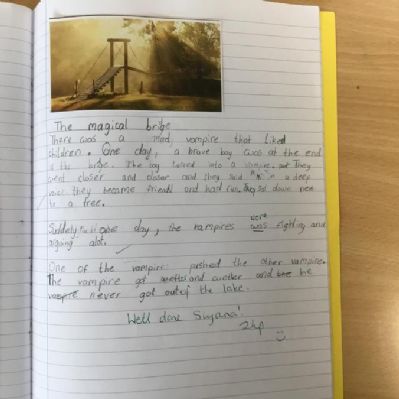 The magical brige
There was a mad vampire that liked
children. One day, a brave boy was at the end
of the brige. The boy turned into a vampire. They
went closer and closer and they said in a deep
voice they became friends and had fun. They sat down next
to a tree.
Suddely one day, the vampires were was fighting and
arguing alot.
One of the vampire pushed the other vampire.
The vampire got and the he
vampire never got out of the lake.
Well done Sujana!
2hp